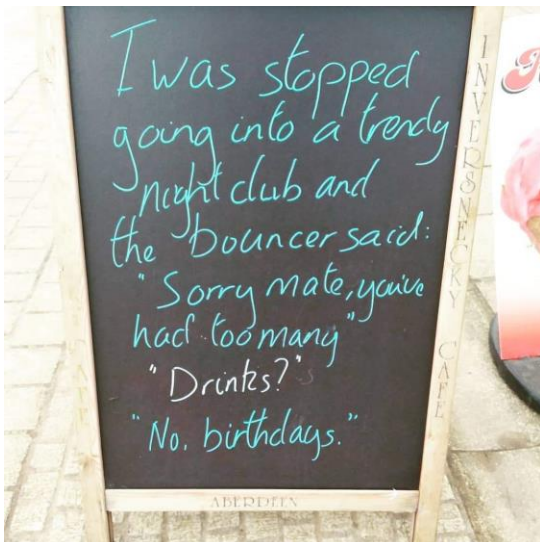 I was stopped
going into a trendy
night club and
the bouncer said:
"Sorry mate, you've
had too many"
"Drinks?"
"No, birthdays."
ABERDEEN
INVERSNECKY CAFE